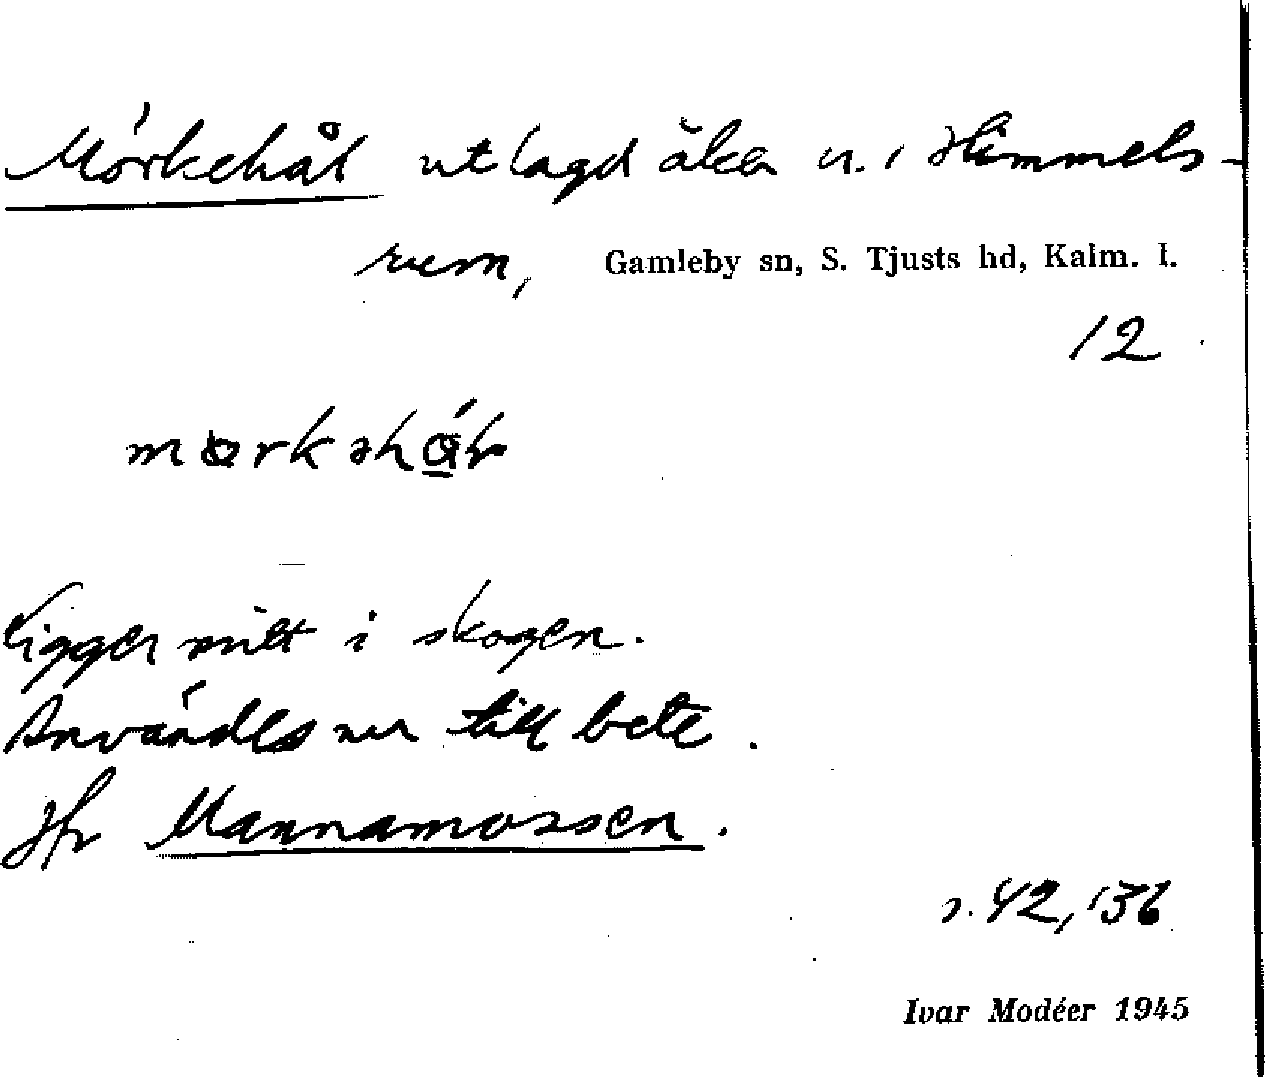 Mörkehål utlagd åker u. i Himmels-
rum, Gamleby sn, S. Tjusts hd, Kalm. l.
12
Ligger mitt i skogen.
Användes nu till bete.
Jfr Mannamossen.
s. 42, 136
Ivar Modéer 1945